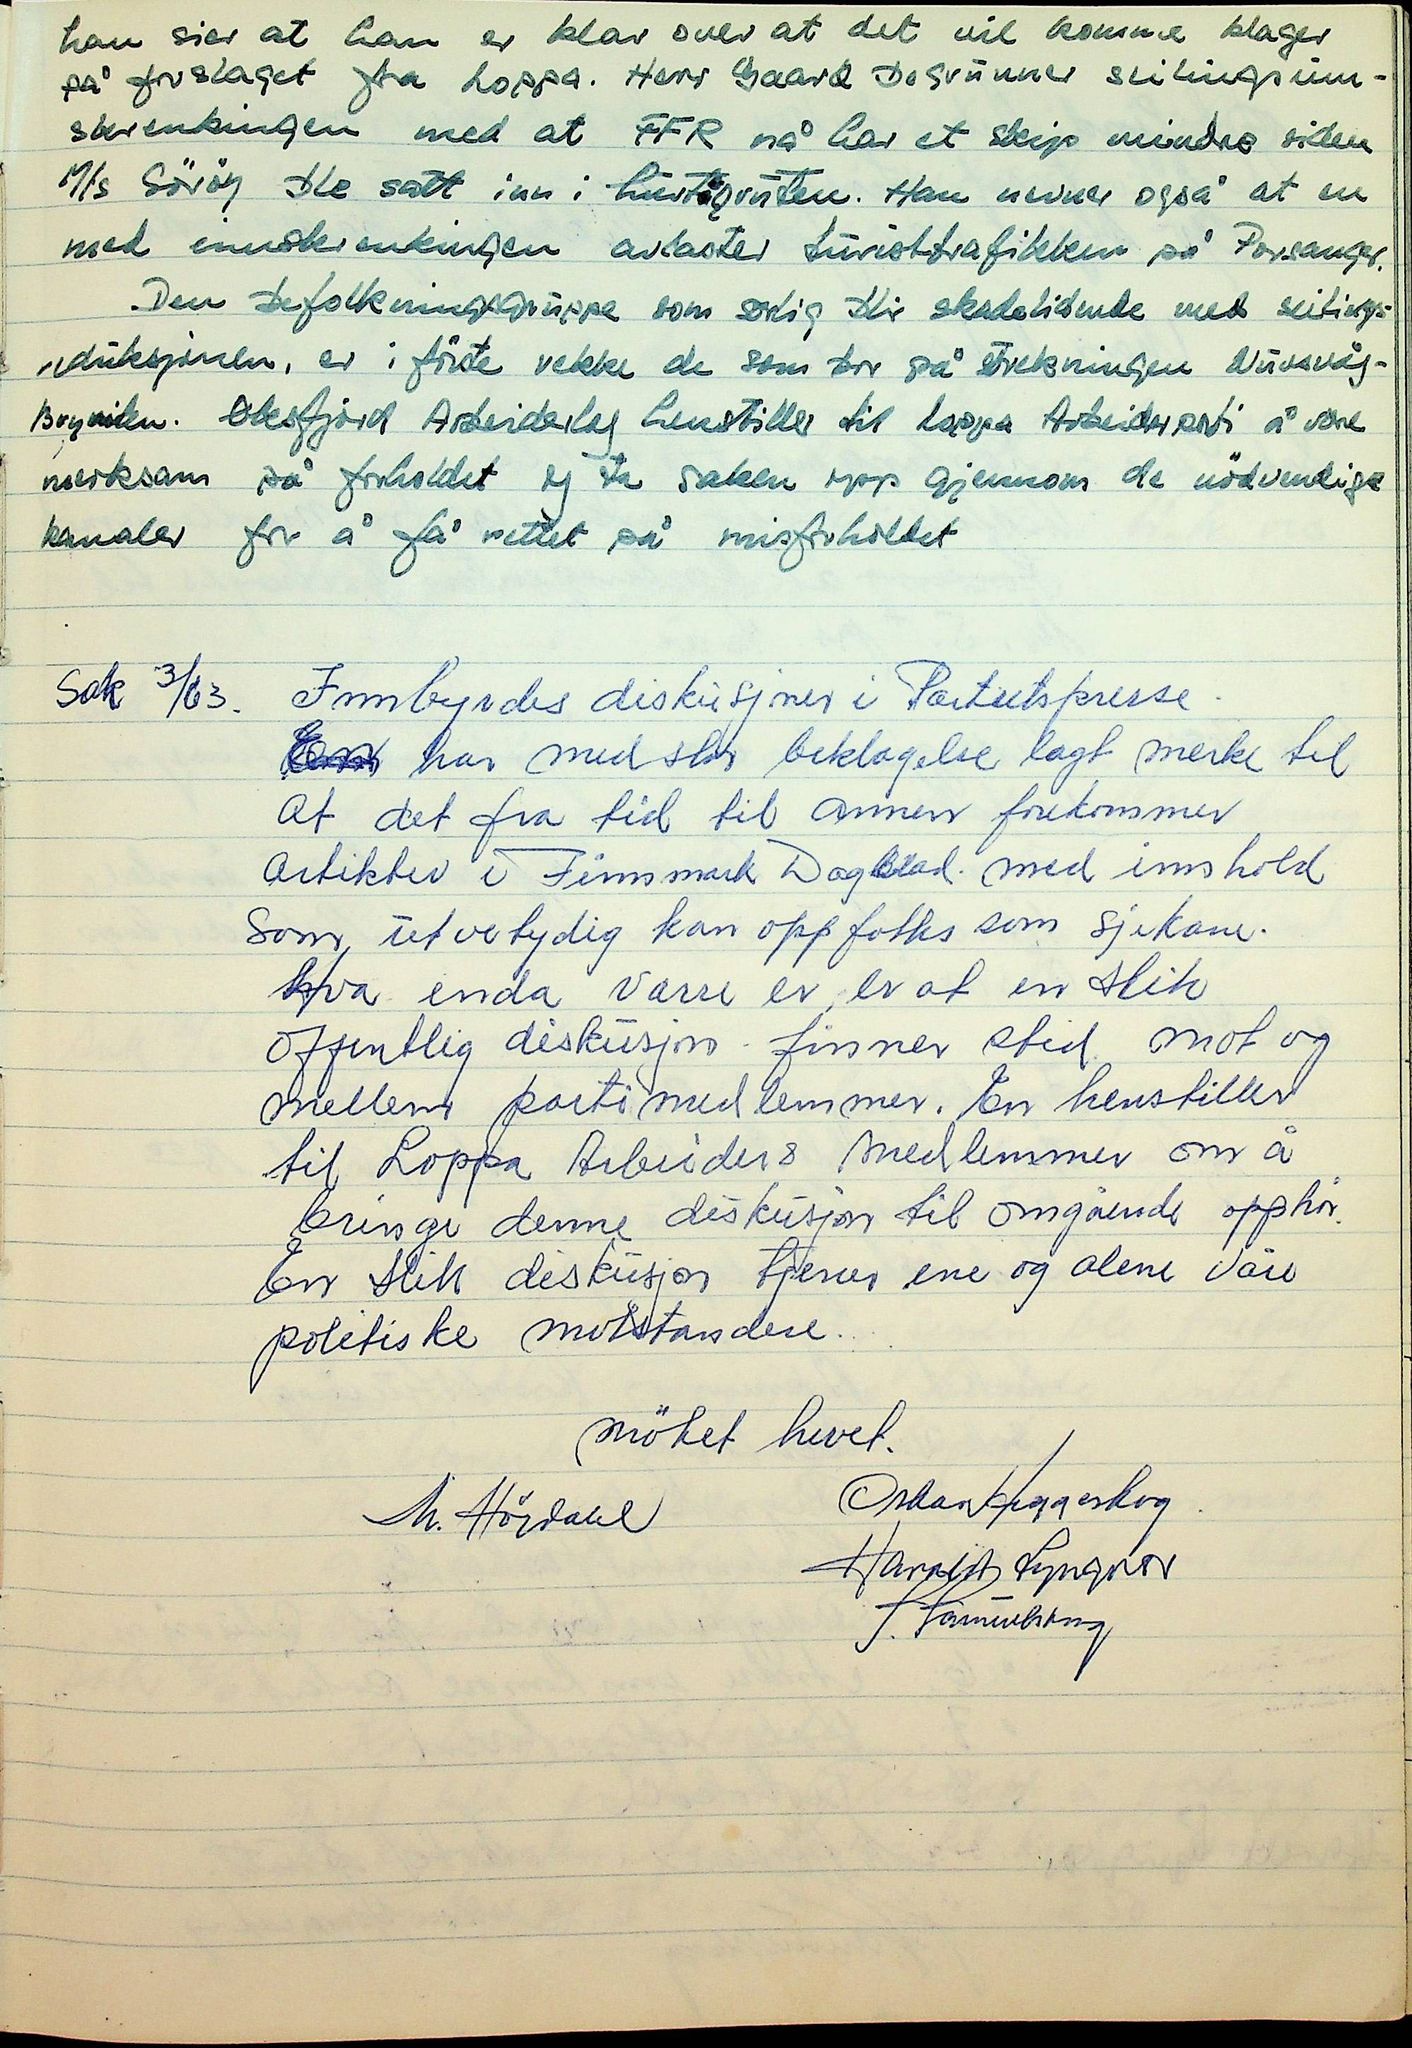 han sier at han er klar over at det vil komme klager
på forslaget fra Loppa. Herr Gaare begrunner seilingsinn-
skrenkingen med at FFR nå har et skip mindre siden
M/s Söröy ble satt inn i hurtigruten. Han nevner også at en
med innskrenkingen avlaster turisttrafikken på Porsanger.
Den befolkningsgruppe som særlig blir skadelidende med seilings-
reduksjonen, er i förste rekke de som bor på strekningen Nuvsvåg-
Bognelen. Öksfjord Arbeiderlag henstiller til Loppa Arbeiderparti å være
merksam på forholdet og ta saken opp gjennom de nödvendige
kanaler for å få rettet på misforholdet
Sak 3/63. Innbyrdes diskusjoner i Partietspresse.
har med stor beklagelse lagt merke til
at det fra tid til annen forekommer
artikler i Finnmark Dagblad. med innhold
som, utvetydig kan oppfattes som sjikane.
hva enda värre er, er at en slik
offentlig diskusjon finner sted mot og
mellem partimedlemmer. En henstiller
til Loppa Arbeiders medlemmer om å
bringe denne diskusjon til omgående opphör.
En slik diskusjon tjener ene og alene våre
politiske motstandere.
Mötet hevet.
M. Höydahl
Oskar Heggeskog
Harald Lyngmo